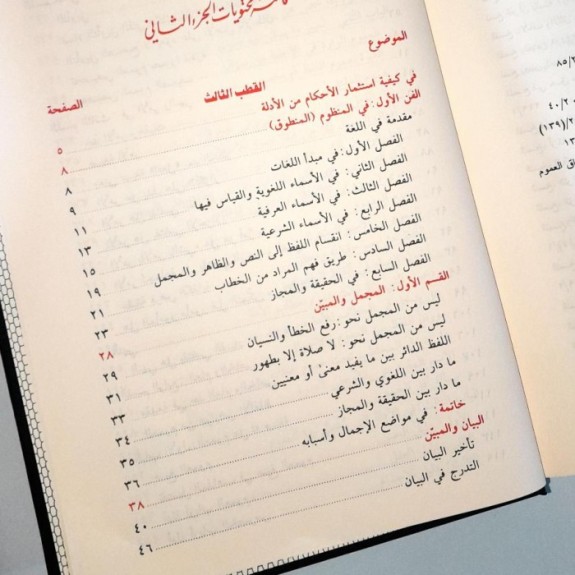 محتويات الجزء الثاني
الموضوع
الصفحة
القطب الثالث
في كيفية استثمار الأحكام من الأدلة ٥
الفن الأول: في المنظوم (المنطوق) ٨
مقدمة في اللغة
الفصل الأول: في مبدأ اللغات ٨
الفصل الثاني: في الأسماء اللغوية والقياس فيها ٩
الفصل الثالث: في الأسماء العرفية ١١
الفصل الرابع: في الأسماء الشرعية ١٣
الفصل الخامس: انقسام اللفظ إلى النص والظاهر والمجمل ١٥
الفصل السادس: طريق فهم المراد من الخطاب ١٩
الفصل السابع: في الحقيقة والمجاز ٢١
٢٣
القسم الأول: المجمل والمبيّن ٢٨
ليس من المجمل نحو: رفع الخطأ والنسيان ٢٩
ليس من المجمل نحو: لا صلاة إلا بطهور ٣١
اللفظ الدائر بين ما يفيد معنىً أو معنيين ٣٣
ما دار بين اللغوي والشرعي ٣٤
ما دار بين الحقيقة والمجاز ٣٥
خاتمة: في مواضع الإجمال وأسبابه ٣٦
البيان والمبيّن ٣٨
تأخير البيان ٤٠
التدرج في البيان ٤٦
٨٥/٢
٤٠/٢
(١٣٩)/٢
١٣
ق العموم